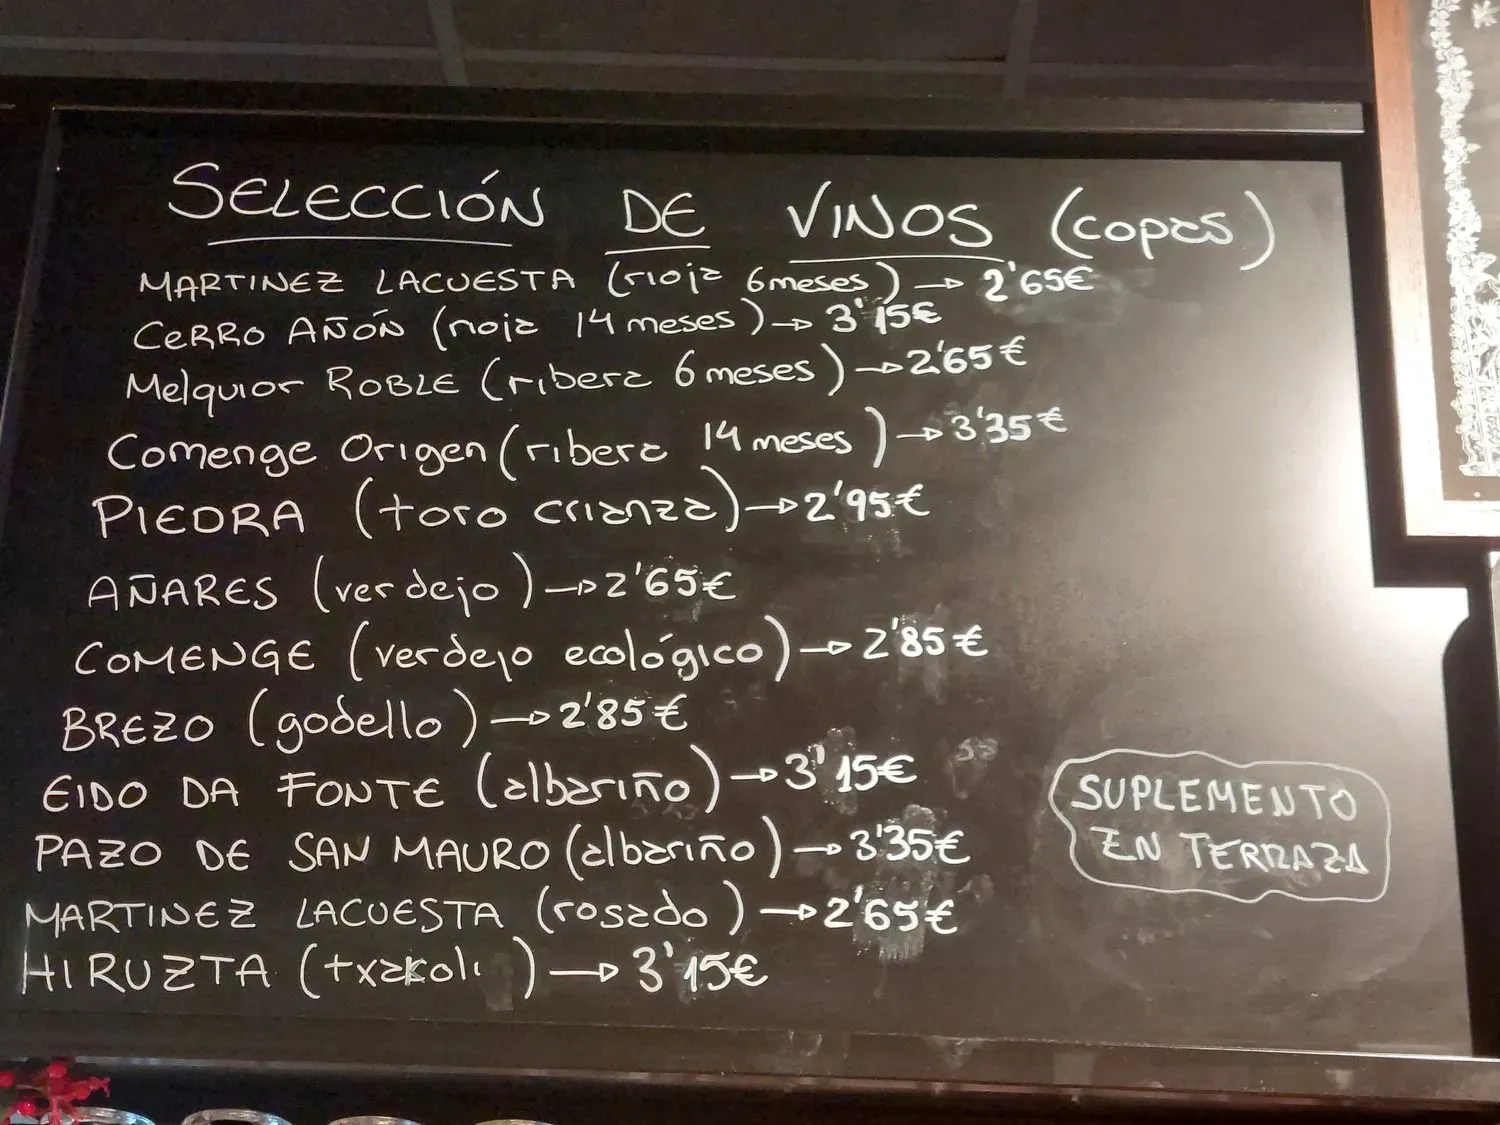 SELECCIÓN DE VINOS (copas)
MARTINEZ LACUESTA (rioja 6 meses) → 2'65€
CERRO AÑÓN (rioja 14 meses) → 3'15€
Melquior ROBLE (ribera 6 meses) → 2'65€
Comenge Origen (ribera 14 meses) → 3'35€
PIEDRA (toro crianza) → 2'95€
AÑARES (verdejo) → 2'65€
COMENGE (verdejo ecológico) → 2'85€
BREZO (godello) → 2'85€
EIDO DA FONTE (albariño) → 3'15€
PAZO DE SAN MAURO (albariño) → 3'35€
MARTINEZ LACUESTA (rosado) → 2'65€
HIRUZTA (txakoli) → 3'15€
SUPLEMENTO
EN TERRAZA